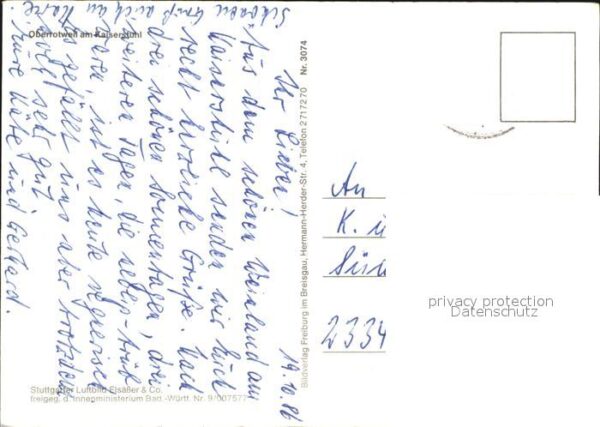 Oberrotweil am Kaiserstuhl
19.10.86
Ihr Lieben!
Aus dem schönen Weinland am
Kaiserstuhl senden wir Euch
recht herzliche Grüße. Nach
drei schönen Sonnentagen, drei
weiteren Tagen, die nebel-trüb
waren, ist es heute regnerisch
Es gefällt uns aber trotzdem
sehr gut
Eure Käte und Gerhard.
Schönen Gruß auch an
Bildverlag Freiburg im Breisgau, Hermann-Herder-Str. 4, Telefon 2717270 Nr. 3074
An
K. u
2334
privacy protection
Datenschutz
Stuttgarter Luftbild Elsäßer & Co.
freigeg. d. Innenministerium Bad.-Württ. Nr. 9/007577